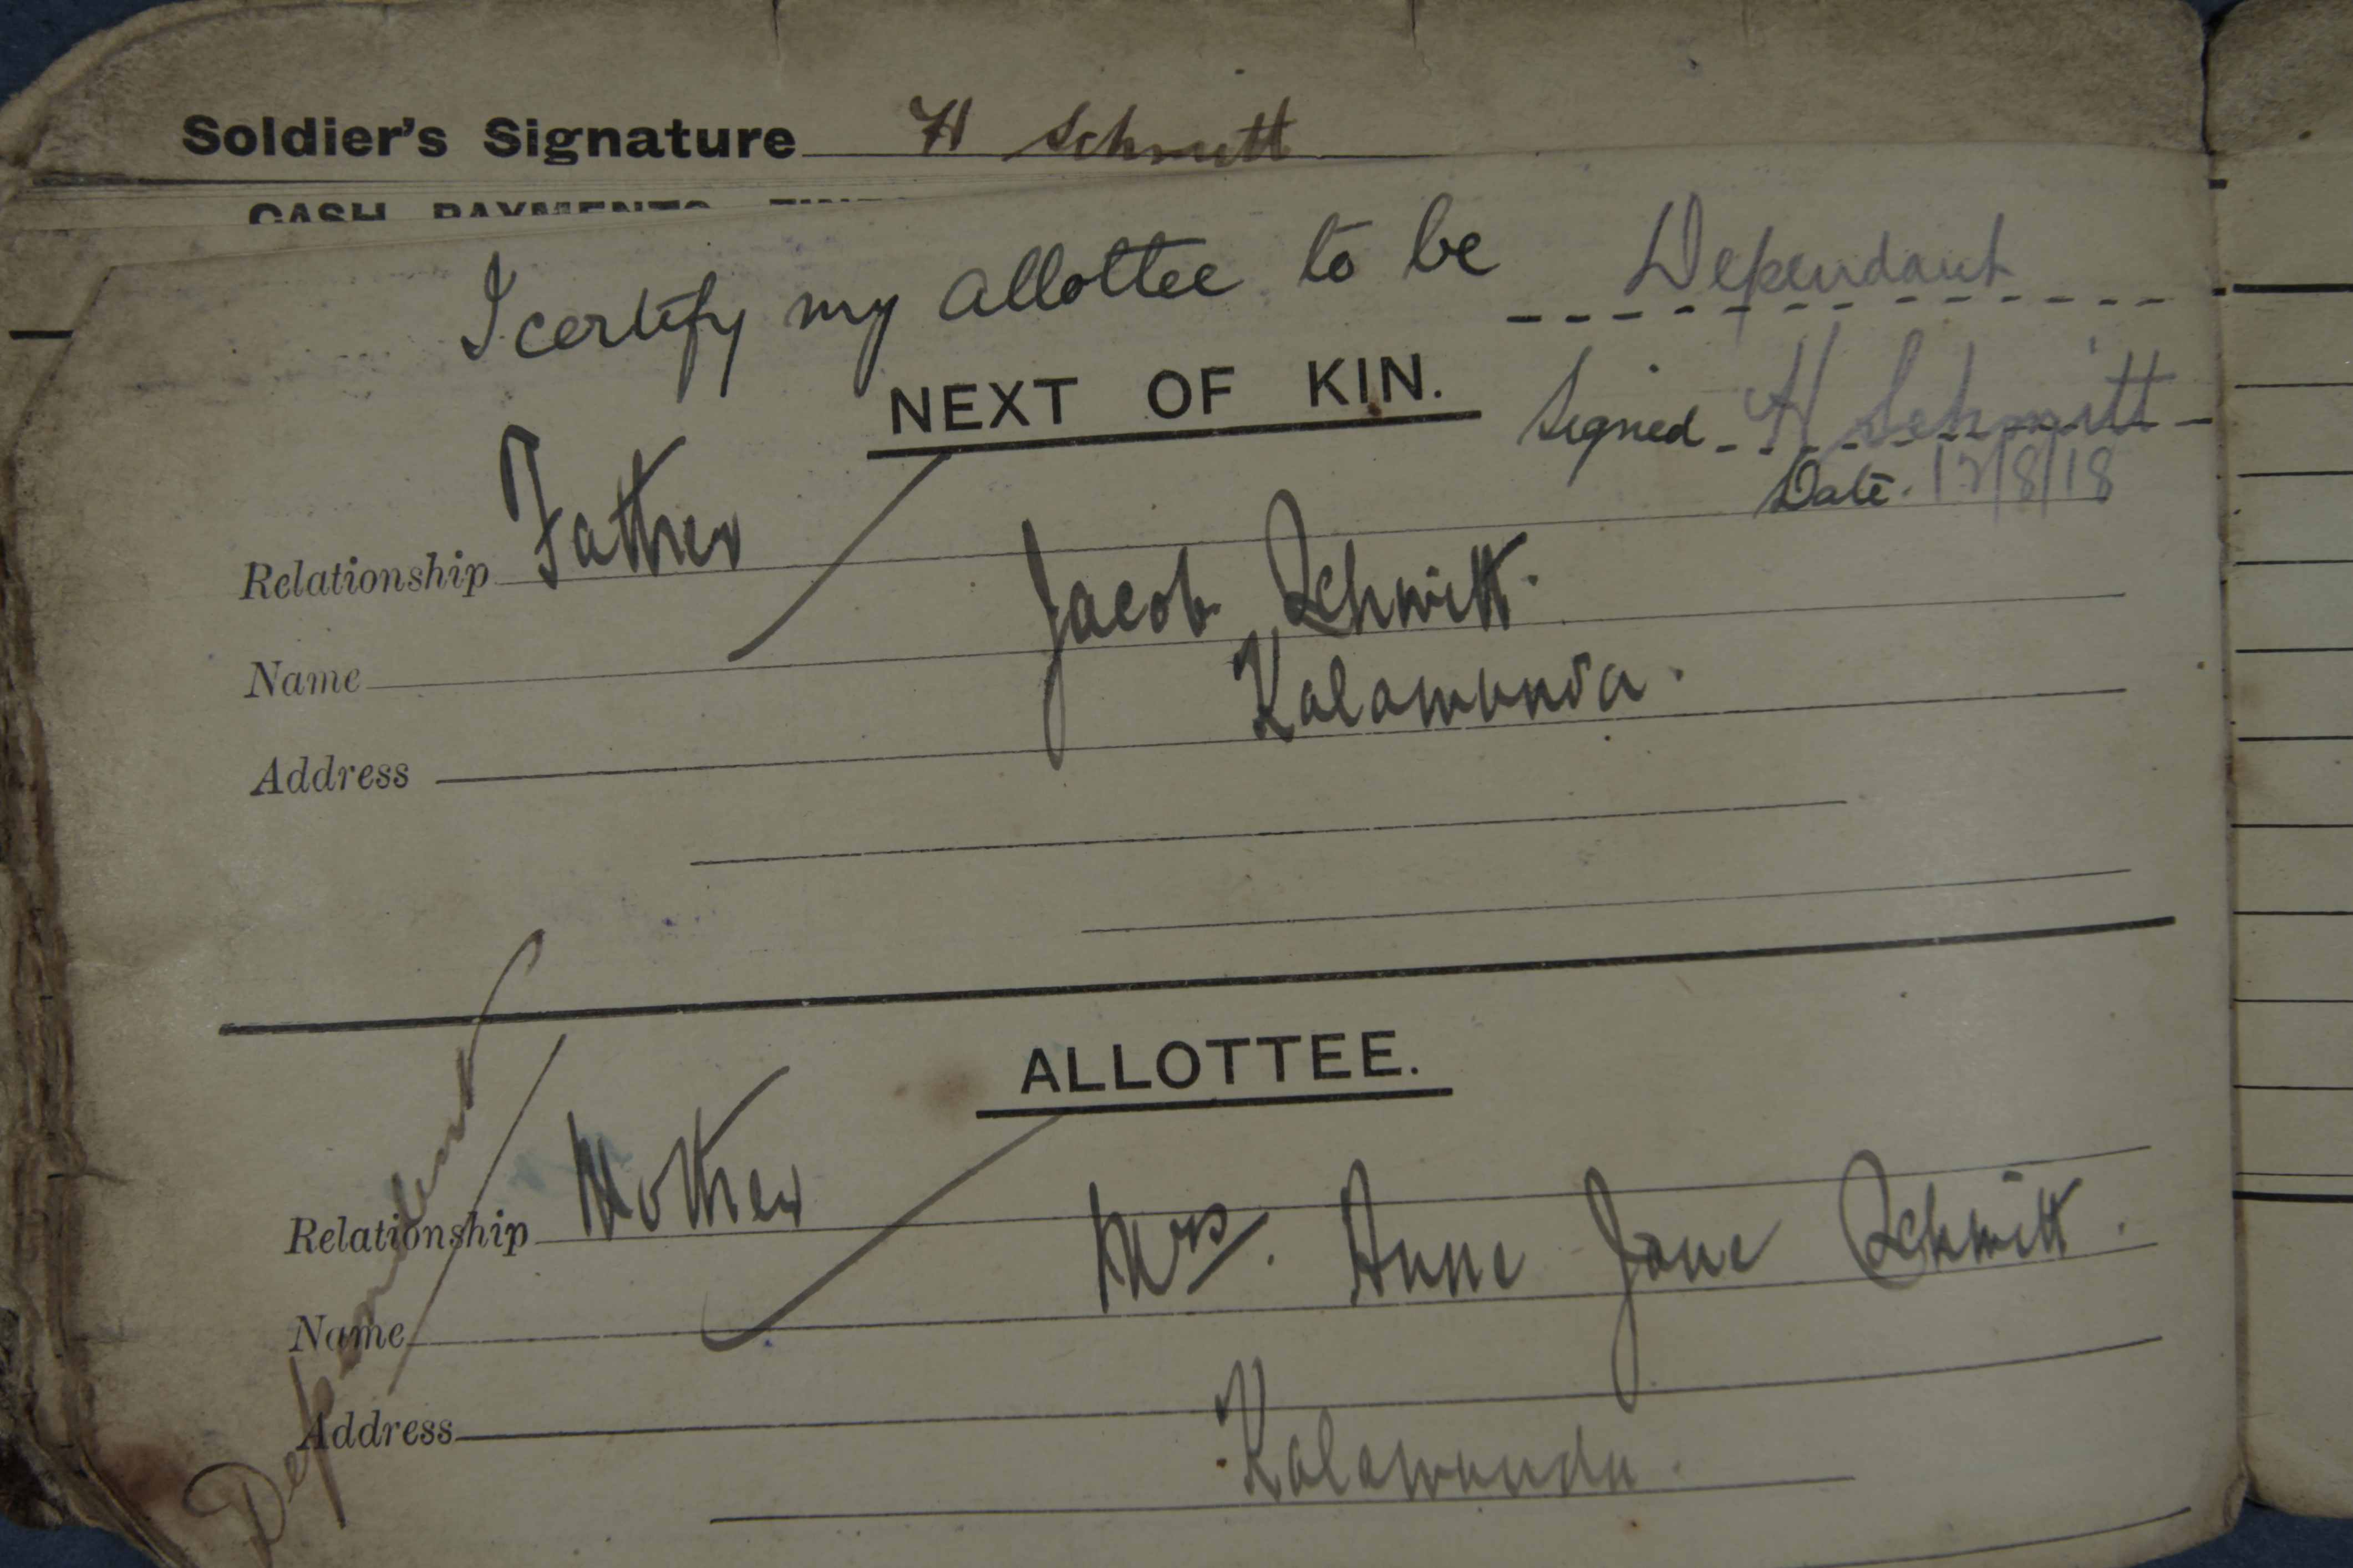 Soldier's Signature H Schmitt
I certify my allottee to be Dependant
NEXT OF KIN.
Signed H Schmitt
Date. 17/8/18
Relationship Father
Name Jacob Schmitt.
Address Kalamunda.
ALLOTTEE.
Relationship Mother
Name Mrs. Anne Jane Schmitt.
Address Kalamunda.
Dependent